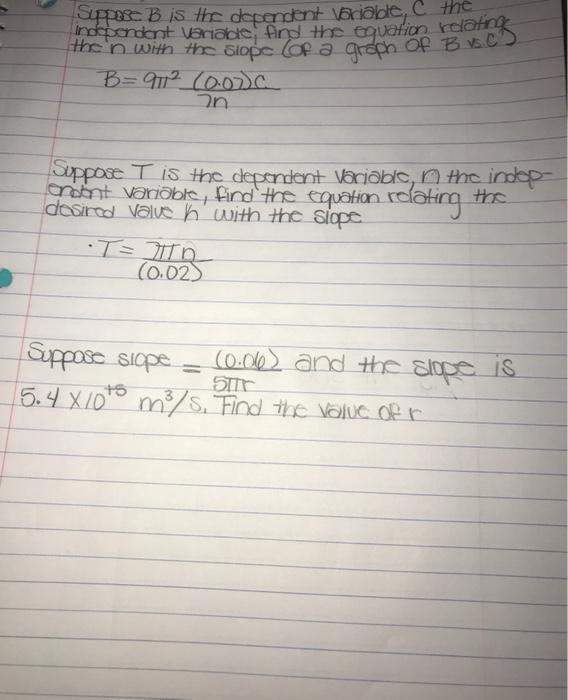 Suppose B is the dependent variable, C the
independent variable, find the equation relating
the n with the slope (of a graph of B vs. C)
B = 9π² (0.07)C
7n
Suppose T is the dependent variable, n the indep-
endent variable, find the equation relating the
desired value h with the slope
· T = 7πn
(0.02)
Suppose slope = (0.06) and the slope is
5πr
5.4 x10⁺⁵ m³/s. Find the value of r